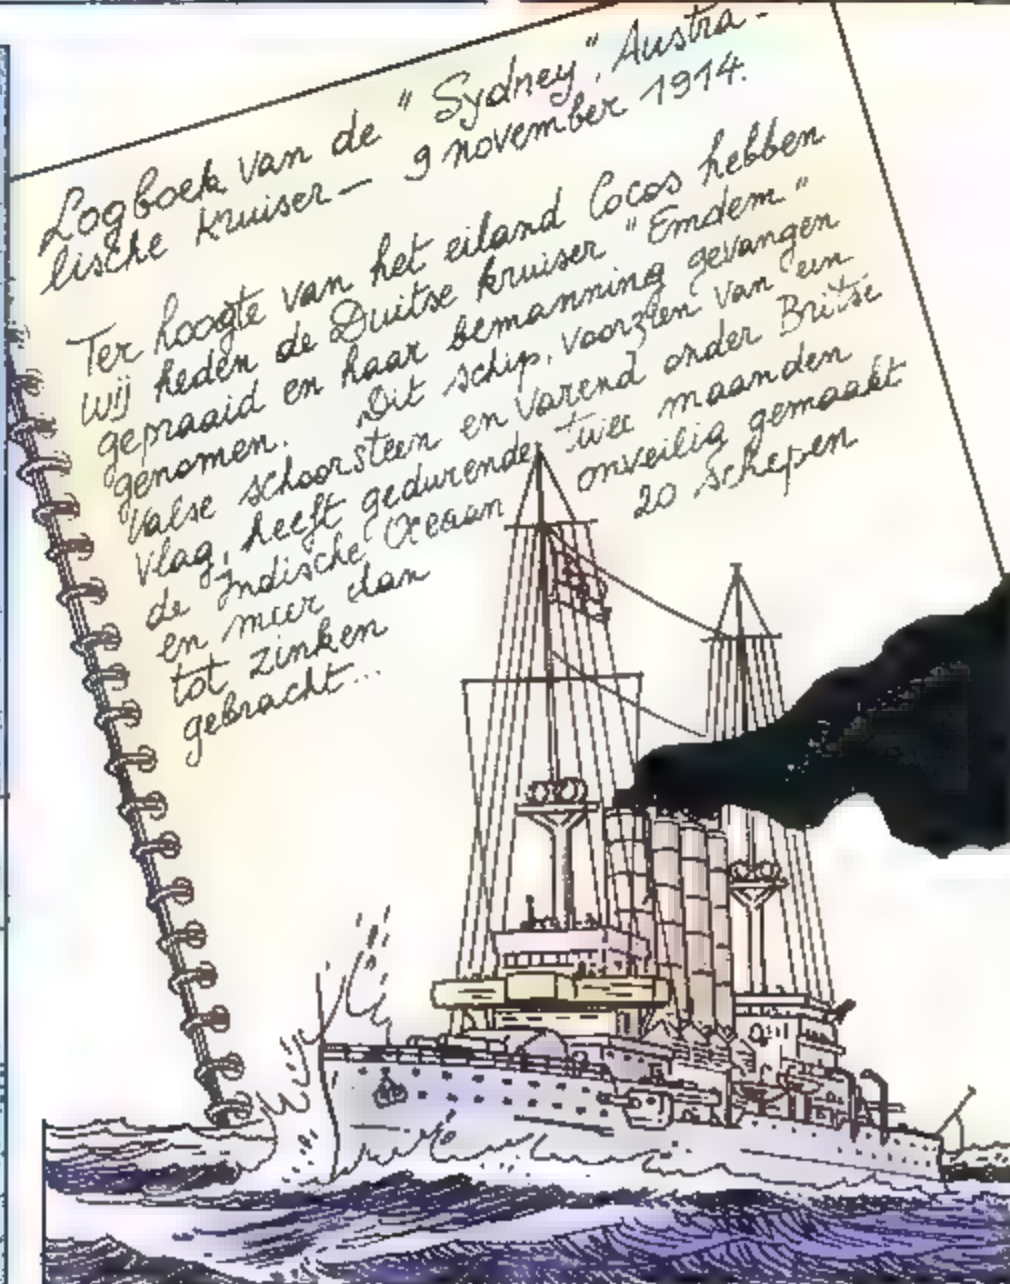 Logboek van de "Sydney", Austra-
lische kruiser — 9 november 1914.
Ter hoogte van het eiland Cocos hebben
wij heden de Duitse kruiser "Emdem"
gepraaid en haar bemanning gevangen
genomen. Dit schip, voorzien van een
valse schoorsteen en varend onder Britse
vlag, heeft gedurende twee maanden
de Indische Oceaan onveilig gemaakt
en meer dan 20 schepen
tot zinken
gebracht...